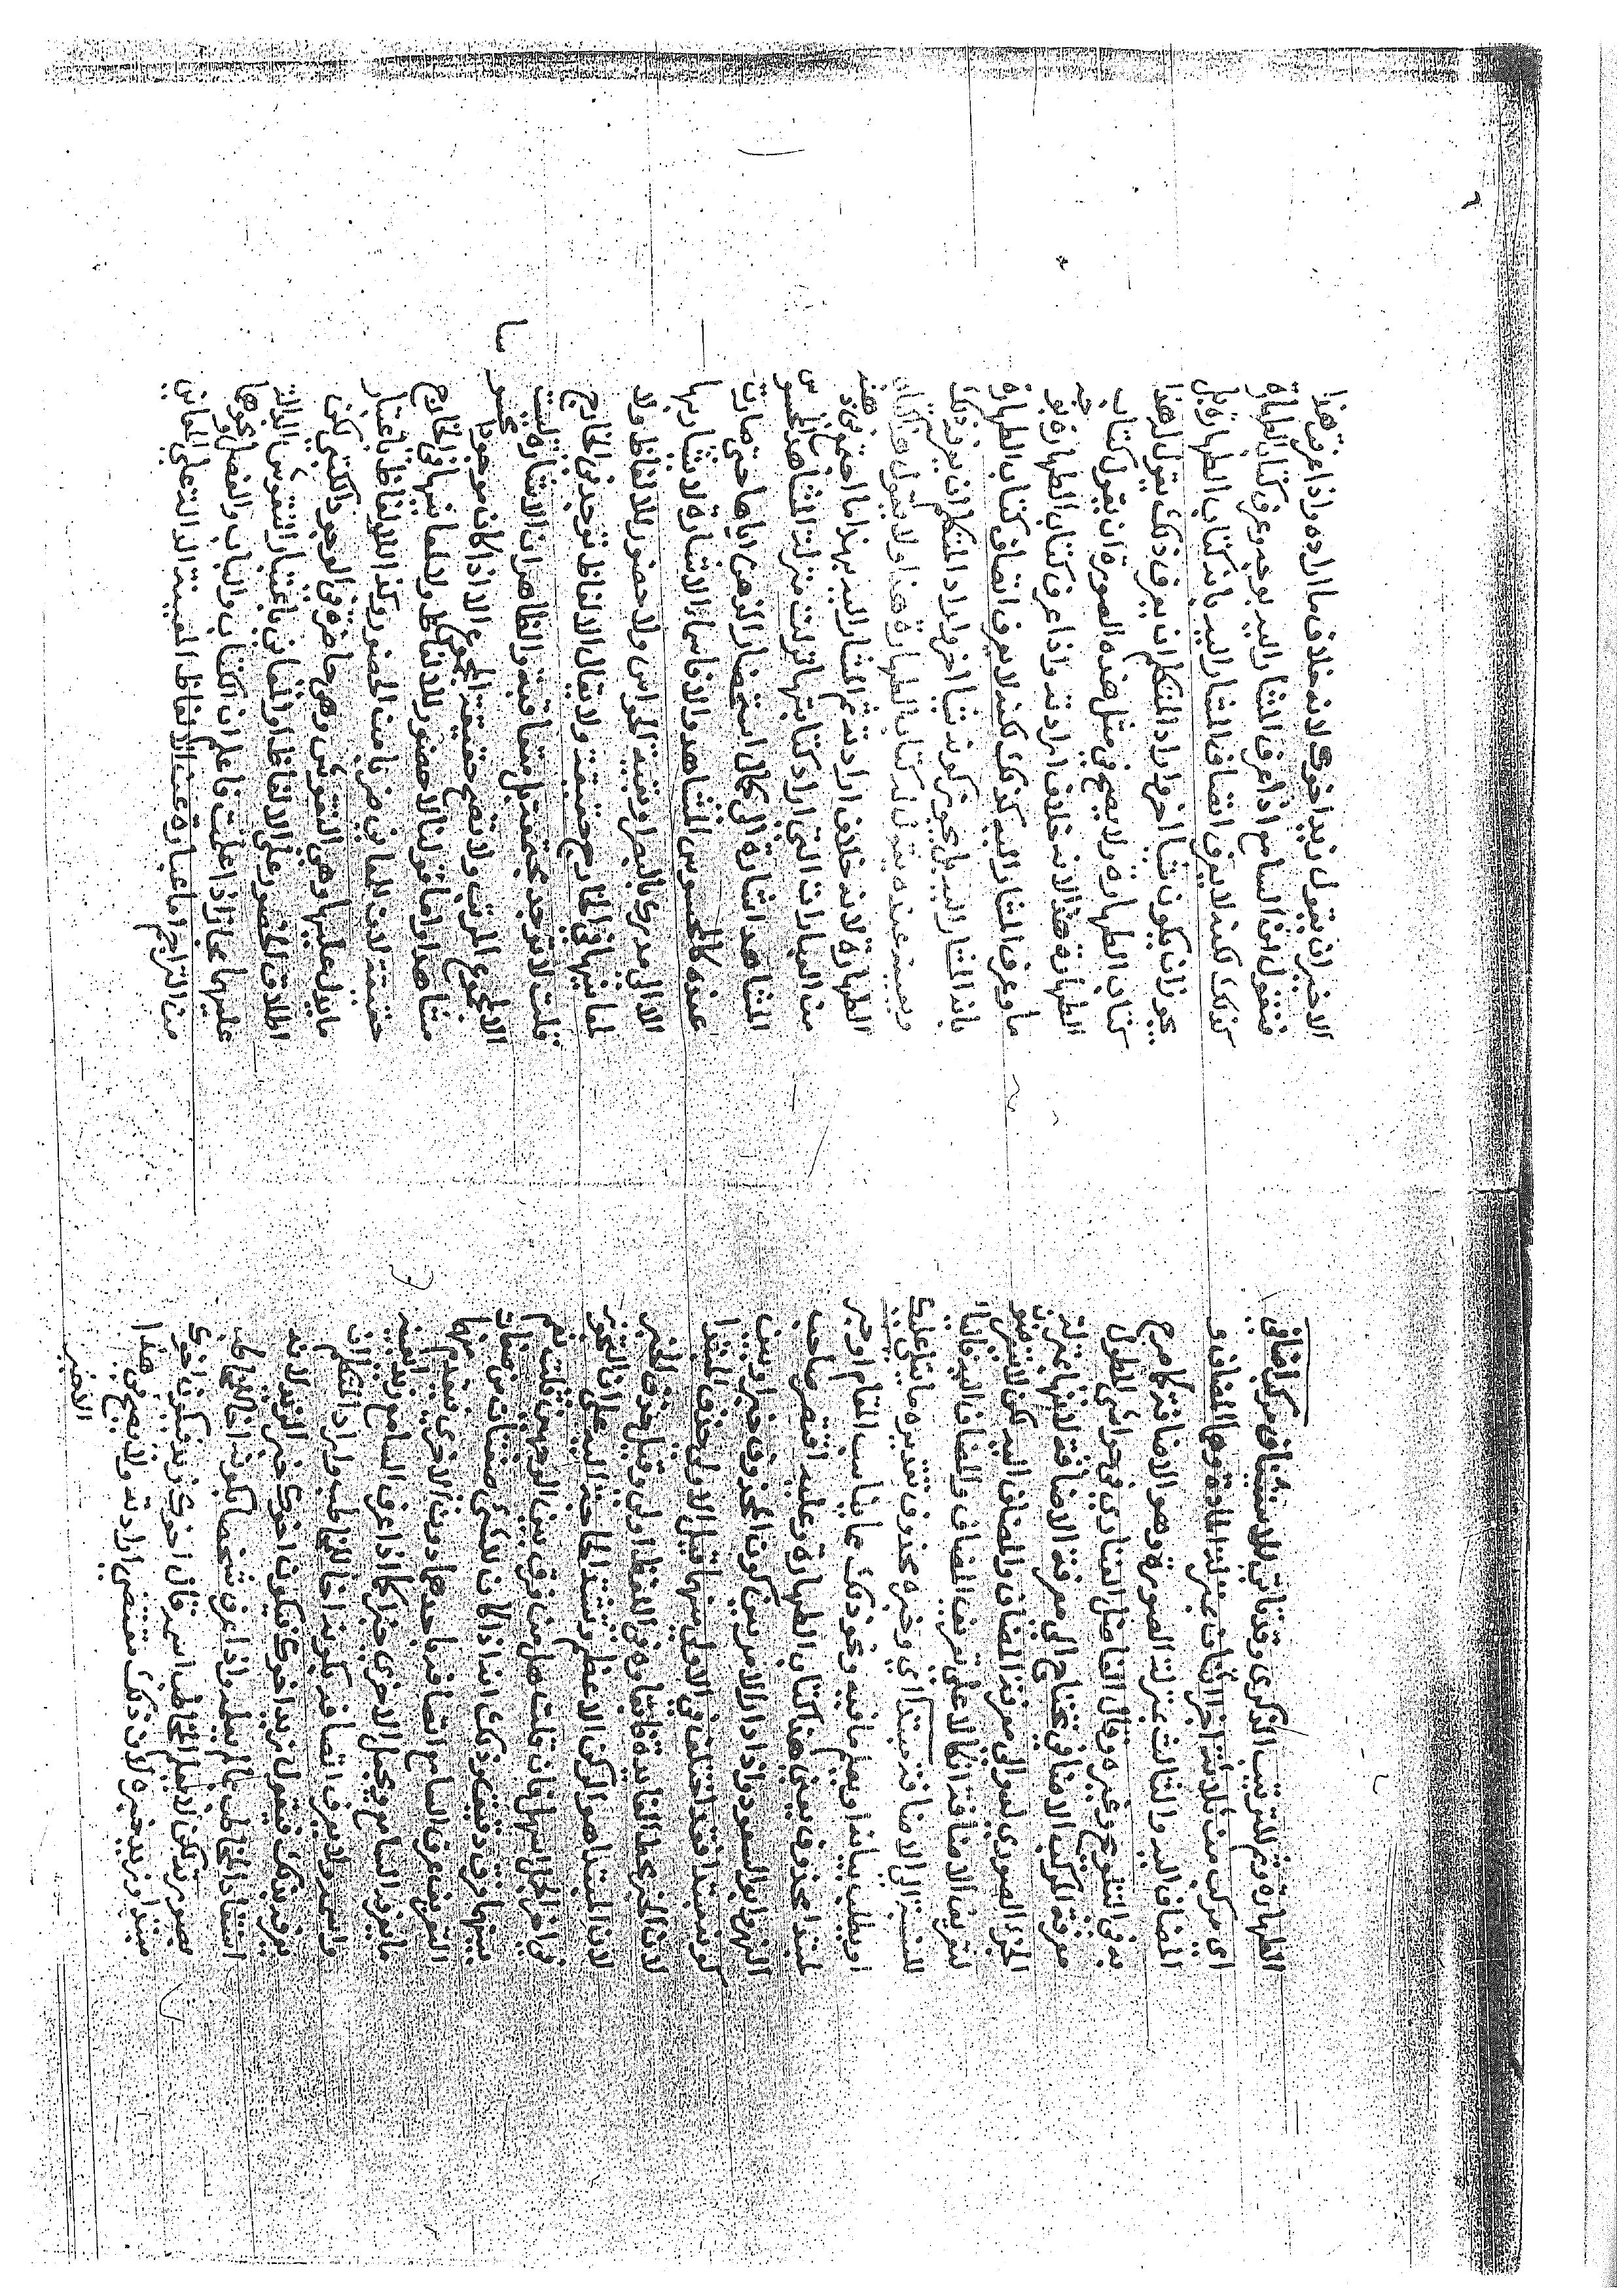 الطهارة وثم للترتيب الذكري وقد تاتي للاستيناف مركب اضافي
اي مركب من ثلاثة اجزا اثنان بمنزلة المادة وهما المضاف و
المضاف اليه والثالث بمنزلة الصورة وهو الاضافة كما صرح
به في التلويح وغيره وقال الفاضل الفناري في حواشي المطول
معرفة المركب الاضافي يحتاج الى معرفة الاضافة لانها بمنزلة
الجزء الصوري الى معرفة المضاف والمضاف اليه لكن
لتعريف الاضافة اتكالا على تعريف المضاف والمضاف اليه
الى الاضافة مبتدا اي وخبره محذوف تقديره ما يتلى عليك
او يطلب بيانه او يعلم ما فيه ونحو ذلك مما يناسب المقام او خبر
لمبتدا محذوف يعني هذا كتاب الطهارة وعليه اقتصر صاحب
النهر وابو السعود واذا دار الامر بين كون المحذوف خبرا وبين
كونه مبتدا فقد اختلف في الاولى منهما فقيل الاولى حذف المبتدا
لان الخبر محط الفايدة فابقاوه في اللفظ اولى وقيل حذف الخبر
لان المبتدا هو الركن الاعظم وتشتد الحاجة اليه على ان التجوز
في اخر الجملة اسهل فان قلت هل من فرق بين الوجهين قلت نعم
بينهما فرق دقيق وذلك انه اذا كان للشئ صفتان من صفات
التعريف عرف السامع اتصافه باحدهما دون الاخرى يقدم منهما
ما يعرفه السامع ويجعل الاخرى خبرا كما اذا عرف السامع زيدا بعينه
واسمه ولا يعرف اتصافه بكونه اخا للمخاطب واراد المتكلم ان
يعرفه بذلك فيقول زيد اخوك فيكون اخوك خبر الزيد لانه
استفاد المخاطب ما لم يعلمه واذا عرف شخصا بكونه اخا للمخاطب
بصورته لكن لا يعلم المخاطب اسمه قال اخوك زيد فيكون اخوك
مبتدا وزيد خبره لان ذلك مقتضى ارادته ولا يصح من هذا
الاخير
الاخير ان يقول زيد اخوك لانه خلاف ما اراده واذا عرف هذا
فنقول ان السامع اذا عرف المشار اليه بوجه وعرف كتاب الطهارة
كذلك لكنه لا يعرف اتصاف المشار اليه بانه كتاب الطهارة بل
يجوز ان يكون شيا اخر واراد المتكلم ان يعرف ذلك يقول له هذا
كتاب الطهارة ولا يصح في مثل هذه الصورة ان يقول كتاب
الطهارة هذا لانه خلاف ارادته واذا عرف كتاب الطهارة بوجه
ما وعرف المشار اليه كذلك لكنه لا يعرف اتصاف كتاب الطهارة
بانه المشار اليه بل يجوز كونه شيا اخر واراد المتكلم ان يعرف ذلك
ويعينه عنده يقول له كتاب الطهارة هذا ولا يقول هذا كتاب
الطهارة لانه خلاف ارادته ثم المشار اليه بهذا ما احتمع في ذهنه
من العبارات التي اراد كتابتها نزلت منزلة المشاهد المحسوس
المشاهد اشارة الى كمال استحضار الذهن اياها حتى صارت
عنده كالمحسوس المشاهد والا فاسماء الاشارة لا يشار بها
الا الى مدرك بالبصر او بقية الحواس ولا حضور للالفاظ ولا
لمعانيها في الخارج حقيقة ولا يقال الالفاظ توجد في الخارج
قلت لا توجد مجتمعة بل متعاقبة والظاهر ان الاشارة ليست
الا لمجموع المرتب ولا تصح حقيقة المجموع الا اذا كان موجودا محسوسا
مشاهدا وما قولنا لا حضور للالفاظ ولا لمعانيها في الخارج
حقيقة لان المعاني ضربا من الحضور وكذا الالفاظ باعتبار
ما يدل عليها وهي النقوش وهي حاضرة في الوجود الكتبي لكن
اطلاق الحضور على الالفاظ والمعاني باعتبار النقوش الدالة
عليها مجاز اذا علمت فاعلم ان الكتاب والباب والفصل ونحوها
من التراجم اما عبارة عن الالفاظ المعينة الدالة على المعاني